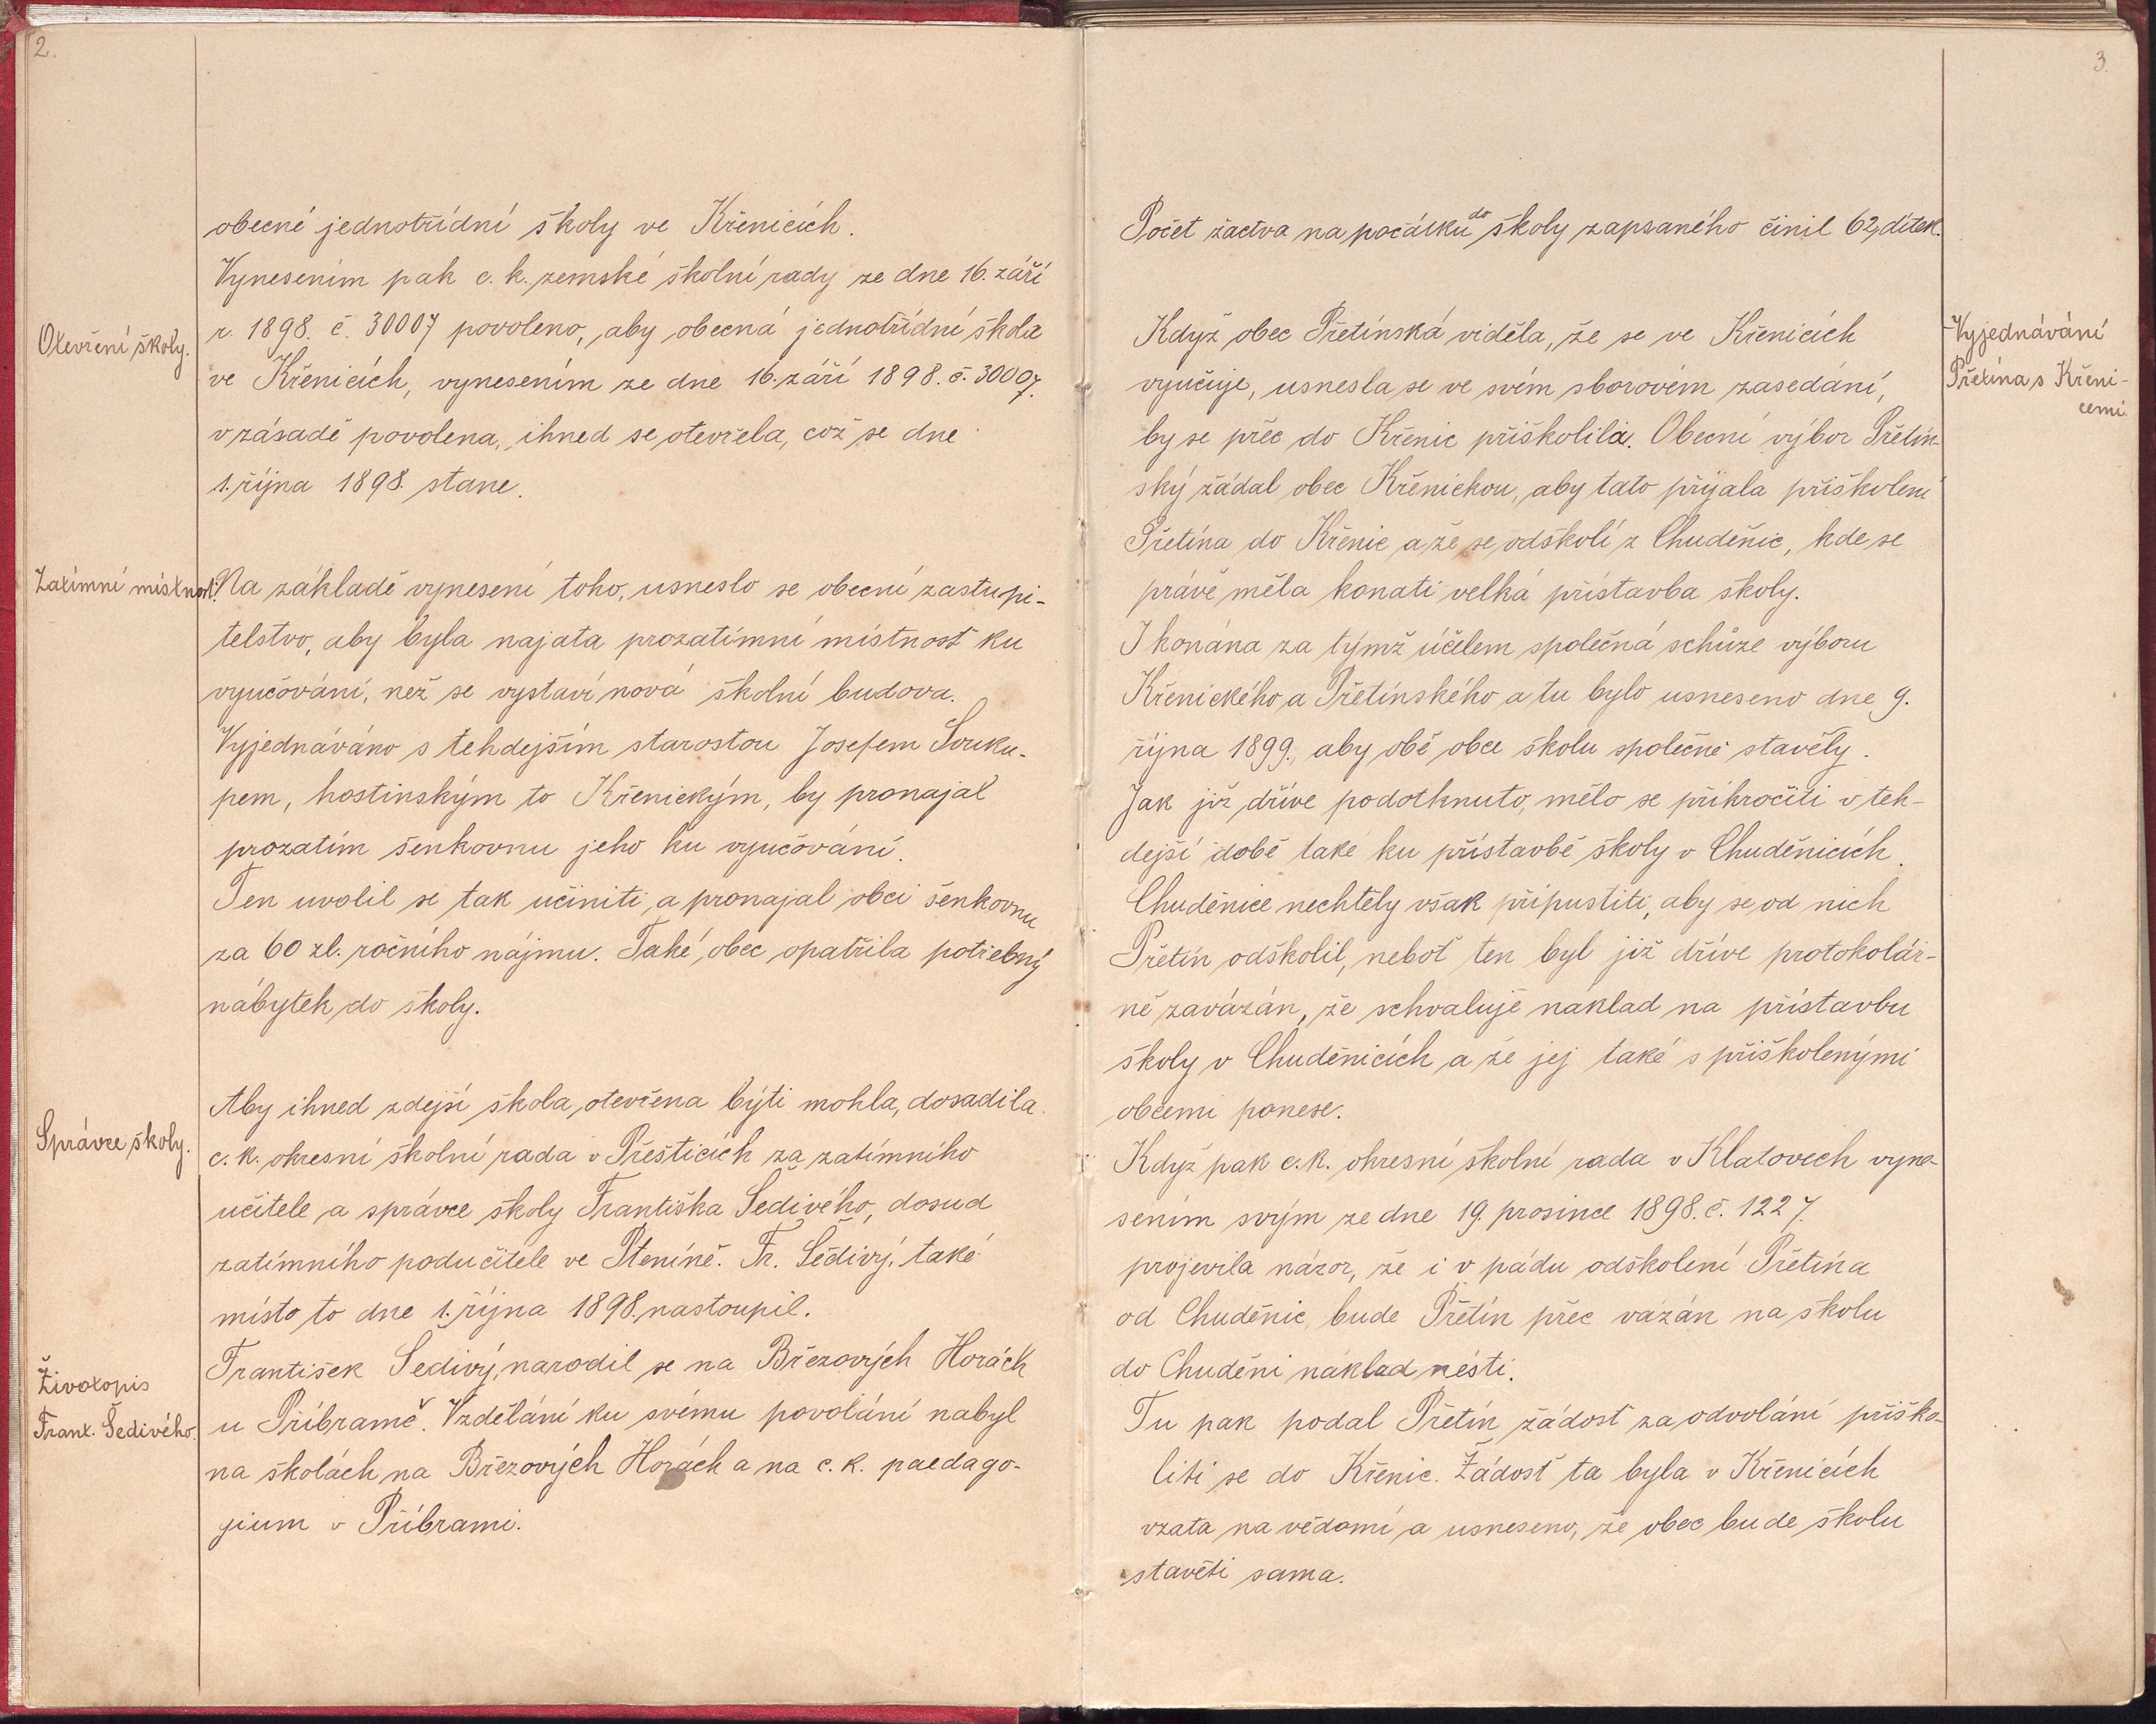 2.
obecné jednotřídní školy ve Křenicích.
Vynesením pak c. k. zemské školní rady ze dne 16. září
Otevření školy.
r. 1898. č. 30007 povoleno, aby obecná jednotřídní škola
ve Křenicích, vynesením ze dne 16. září 1898. č. 30007.
v zásadě povolena, ihned se otevřela, což se dne
1. října 1898. stane.
Zatímní místnost.
Na základě vynesení toho, usneslo se obecní zastupi-
telstvo, aby byla najata prozatímní místnost ku
vyučování, než se vystaví nová školní budova.
Vyjednáváno s tehdejším starostou Josefem Souku-
pem, hostinským to Křenickým, by pronajal
prozatím šenkovnu jeho ku vyučování.
Ten uvolil se tak učiniti a pronajal obci šenkovnu
za 60 zl. ročního nájmu. Také obec opatřila potřebný
nábytek do školy.
Správce školy.
Aby ihned zdejší škola otevřena býti mohla, dosadila
c. k. okresní školní rada v Přešticích za zatímního
učitele a správce školy Františka Šedivého, dosud
zatímního podučitele ve Pteníně. Fr. Šedivý, také
místo to dne 1. října 1898. nastoupil.
Životopis
Frant. Šedivého.
František Šedivý, narodil se na Březových Horách
u Příbramě. Vzdělání ku svému povolání nabyl
na školách na Březových Horách a na c. k. paedago-
gium v Příbrami.
3.
Počet žactva na počátku do školy zapsaného činil 62 dítek.
Vyjednávání
Přetína s Křeni-
cemi.
Když obec Přetínská viděla, že se ve Křenicích
vyučuje, usnesla se ve svém sborovém zasedání,
by se přec do Křenic přiškolila. Obecní výbor Přetín-
ský žádal obec Křenickou, aby tato přijala přiškolení
Přetína do Křenic a že se odškolí z Chuděnic, kde se
právě měla konati velká přístavba školy.
I konána za týmž účelem společná schůze výboru
Křenického a Přetínského a tu bylo usneseno dne 9.
října 1899., aby obě obce školu společně stavěly.
Jak již dříve podotknuto, mělo se přikročiti v teh-
dejší době také ku přístavbě školy v Chuděnicích.
Chuděnice nechtěly však připustiti, aby se od nich
Přetín odškolil, neboť ten byl již dříve protokolár-
ně zavázán, že schvaluje náklad na přístavbu
školy v Chuděnicích a že jej také s přiškolenými
obcemi ponese.
Když pak c. k. okresní školní rada v Klatovech vyne-
sením svým ze dne 19. prosince 1898. č. 1227.
projevila názor, že i v pádu odškolení Přetína
od Chuděnic, bude Přetín přec vázán na školu
do Chuděni náklad nésti.
Tu pak podal Přetín žádost za odvolání přiško-
liti se do Křenic. Žádost ta byla v Křenicích
vzata na vědomí a usneseno, že obec bude školu
stavěti sama.